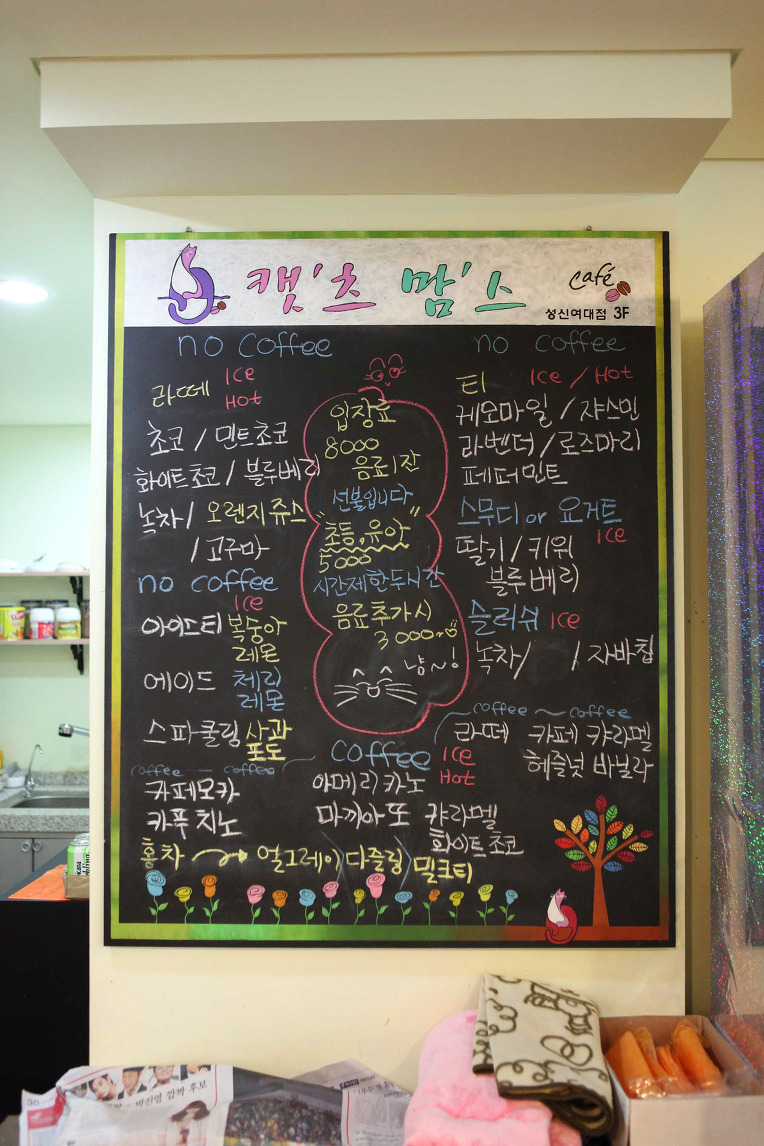 캣'츠 맘'스
café
성신여대점 3F
no coffee
라떼 Ice
Hot
초코 / 민트초코
화이트초코 / 블루베리
녹차 / 오렌지쥬스
/ 고구마
no coffee
Ice
아이스티 복숭아
레몬
에이드 체리
레몬
스파클링 사과
포도
입장료
8000
음료1잔
선불입니다
"초등,유아"
5000
시간제한두시간
음료추가시
3000
냥~!
no coffee
티 Ice / Hot
케모마일 / 쟈스민
라벤더 / 로즈마리
페퍼민트
스무디 or 요거트
Ice
딸기 / 키위
블루베리
슬러쉬 Ice
녹차 / / 자바칩
coffee ~ coffee
라떼 카페 캬라멜
헤즐넛 바닐라
coffee coffee
coffee Ice
Hot
카페모카
카푸치노
아메리카노
마끼아또 캬라멜
화이트초코
홍차 얼그레이 다즐링 밀크티
박진영 깜짝 후보